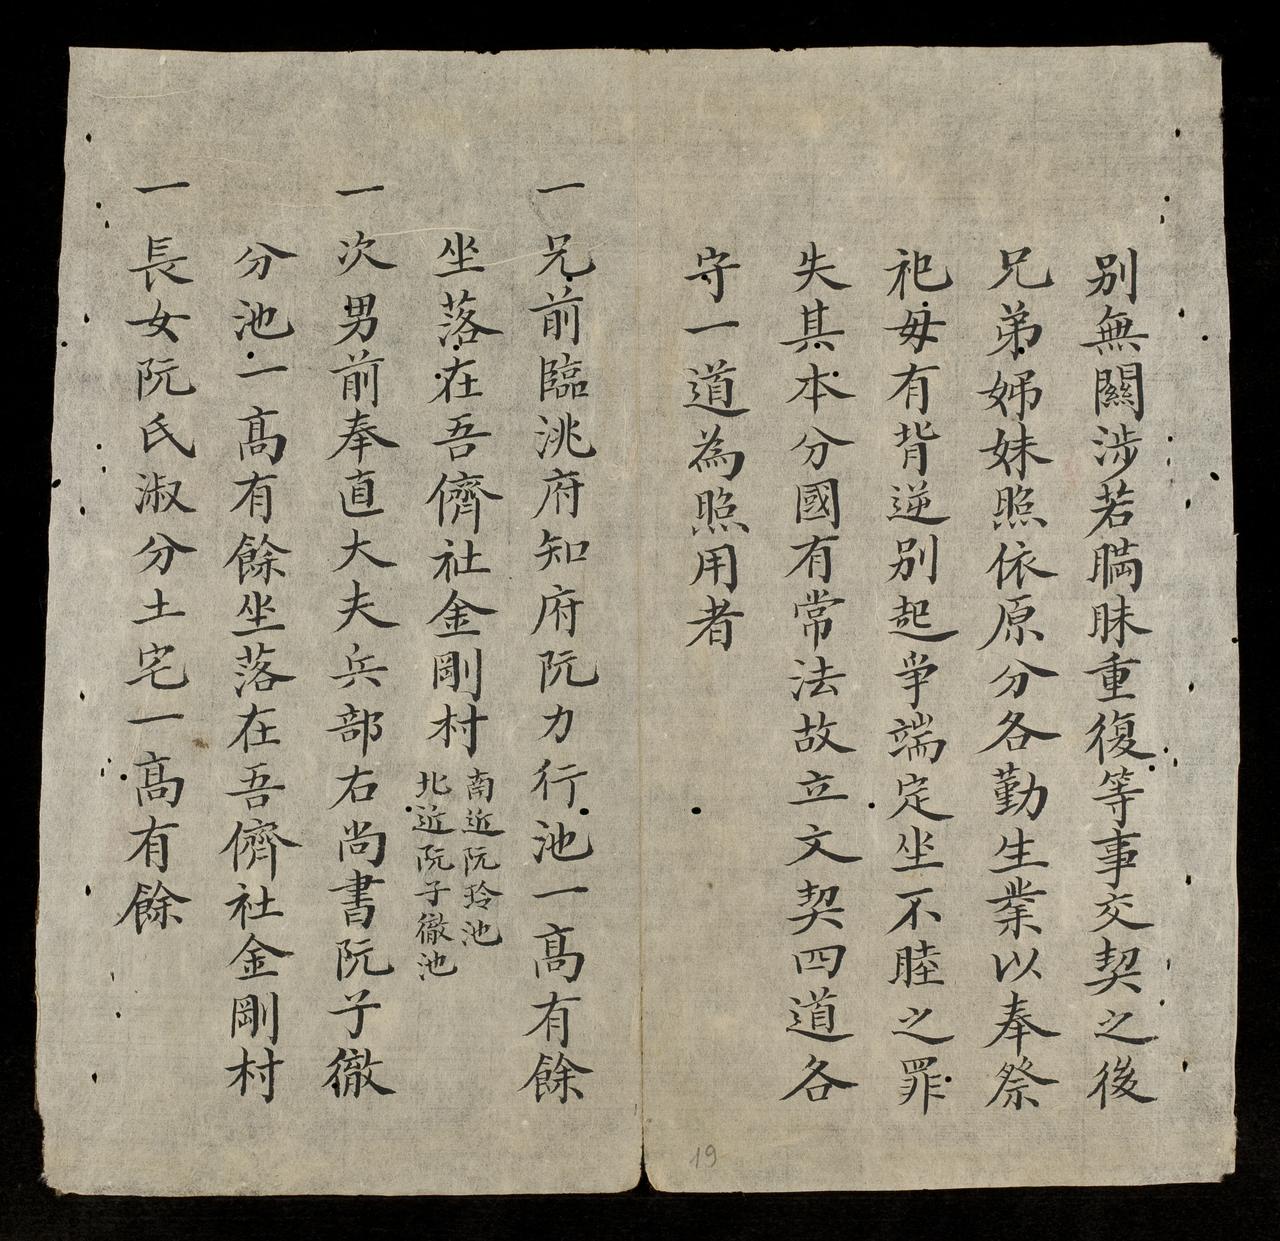 别無關涉若瞞昧重復等事交契之後
兄弟姊妹照依原分各勤生業以奉祭
祀毋有背逆别起爭端定坐不睦之罪
失其本分國有常法故立文契四道各
守一道為照用者
一兄前臨洮府知府阮力行池一高有餘
坐落在吾儕社金剛村
南近阮玲池
北近阮子徹池
一次男前奉直大夫兵部右尚書阮子徹
分池一高有餘坐落在吾儕社金剛村
一長女阮氏淑分土宅一高有餘
19